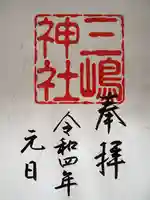 奉拝
三嶋
神社
令和四年
元日